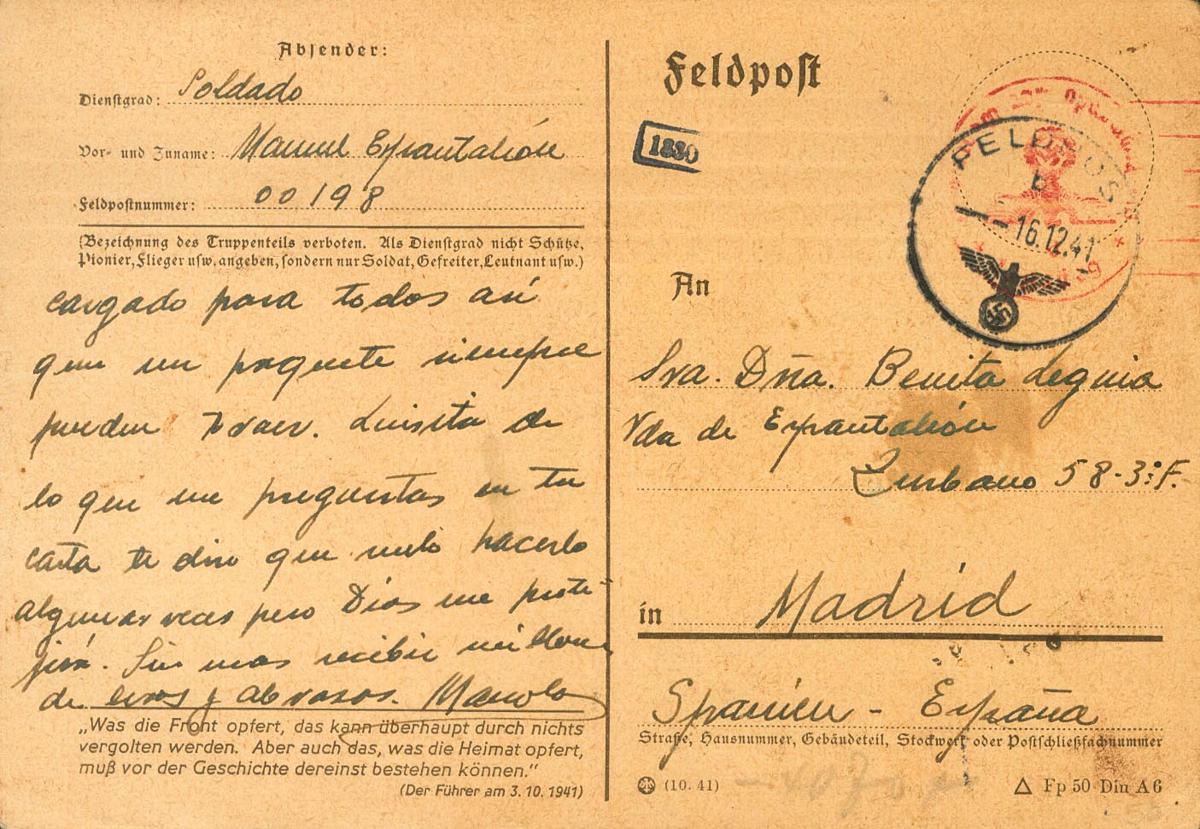 Absender:
Dienstgrad: Soldado
Vor- und Zuname: Manuel Espantaleón
Feldpostnummer: 00198
(Bezeichnung des Truppenteils verboten. Als Dienstgrad nicht Schütze,
Pionier, Flieger usw. angeben, sondern nur Soldat, Gefreiter, Leutnant usw.)
cargado para todos asi
que un paquete siempre
pueden traer. Luisita de
lo que me preguntas en tu
carta te dire que suelo hacerlo
algunas veces pero Dios me prote-
jerá. Sin mas recibir millones
de besos y abrasos. Manolo
„Was die Front opfert, das kann überhaupt durch nichts
vergolten werden. Aber auch das, was die Heimat opfert,
muß vor der Geschichte dereinst bestehen können.“
(Der Führer am 3.10.1941)
Feldpost
1880
FELDPOST
b
-16.12.41
An
Sra. Dña. Benita Leguia
Vda de Espantaleón
Zurbano 58-3º F.
in Madrid
Spanien - España
Straße, Hausnummer, Gebäudeteil, Stockwerk oder Postschließfachnummer
(10. 41)
Fp 50 Din A6